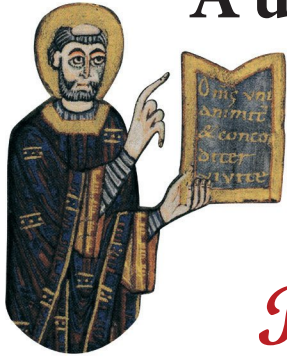 A
Om̅s vni
animit
& conco
diter
vivite